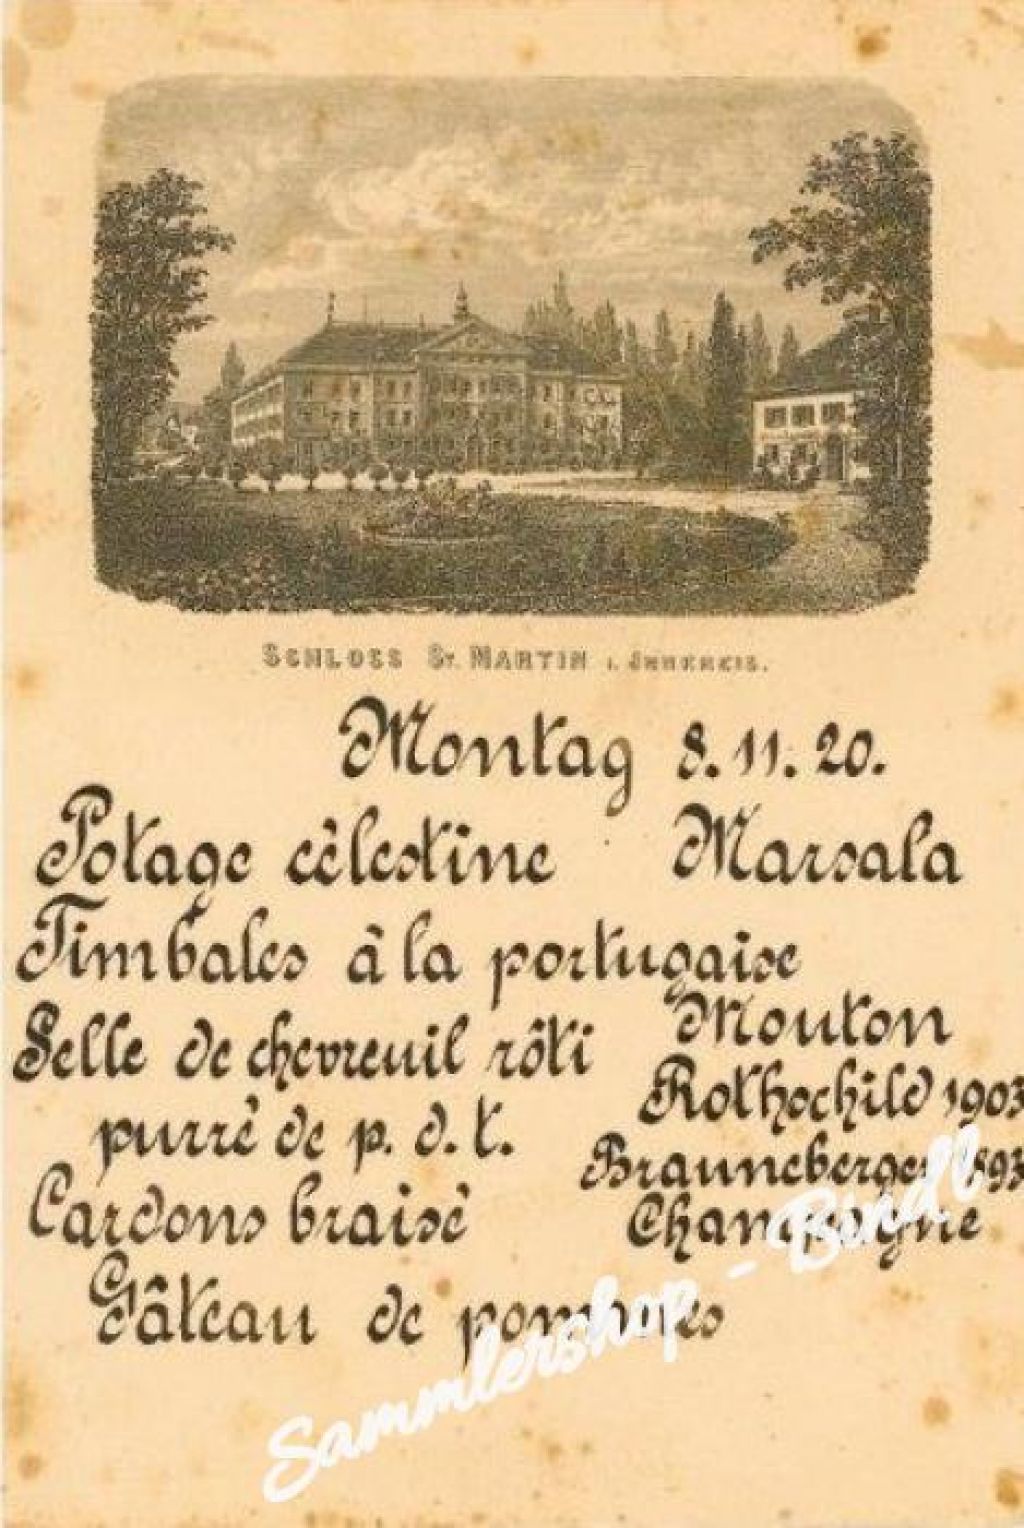 SCHLOSS ST. MARTIN I. INNKREIS.
Montag 8. 11. 20.
Potage cèlestine Marsala
Timbales â la portugaise
Selle de chevreuil rôti Mouton
Rothschild 1903
purrè de p. d. t.
Brauneberger 1893
Cardons braisè Champagne
Gâteau de pommes
Sammlershop - Bindl